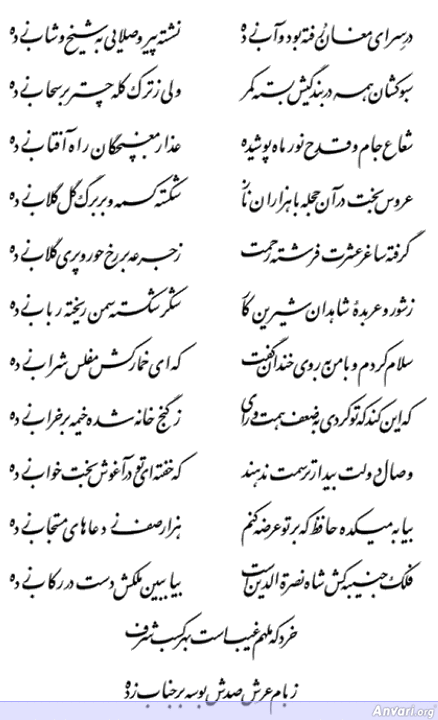 در سرای مغان رفته بود و آب زده نشسته پیر و صلایی به شیخ و شاب زده
سبوکشان همه در بندگیش بسته کمر ولی ز ترک کله چتر بر سحاب زده
شعاع جام و قدح نور ماه پوشیده عذار مغبچگان راه آفتاب زده
عروس بخت در آن حجله با هزاران ناز شکسته کسمه و بر برگ گل گلاب زده
گرفته ساغر عشرت فرشته رحمت ز جرعه بر رخ حور و پری گلاب زده
ز شور و عربده شاهدان شیرین کار شکر شکسته سمن ریخته رباب زده
سلام کردم و با من به روی خندان گفت که ای خمارکش مفلس شراب زده
که این کند که تو کردی به ضعف همت و رای ز گنج خانه شده خیمه بر خراب زده
وصال دولت بیدار ترسمت ندهند که خفته‌ای تو در آغوش بخت خواب زده
بیا به میکده حافظ که بر تو عرضه کنم هزار صف ز دعاهای مستجاب زده
فلک جنیبه کش شاه نصرة الدین است بیا ببین ملکش دست در رکاب زده
خرد که ملهم غیب است بهر کسب شرف
ز بام عرش صدش بوسه بر جناب زده
Anvari.org